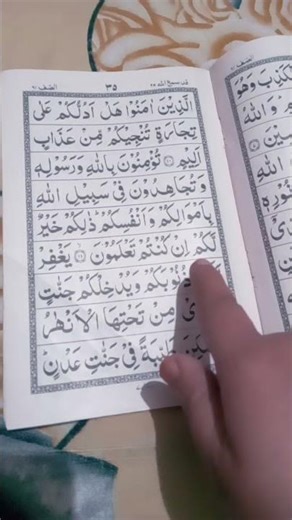 الصف ٦١
٣٥
قد سمع الله ٢٨
الَّذِيْنَ اٰمَنُوْا هَلْ اَدُلُّكُمْ عَلٰى
تِجَارَةٍ تُنْجِيْكُمْ مِّنْ عَذَابٍ
اَلِيْمٍ ۝ تُؤْمِنُوْنَ بِاللّٰهِ وَرَسُوْلِهٖ
وَتُجَاهِدُوْنَ فِيْ سَبِيْلِ اللّٰهِ
بِاَمْوَالِكُمْ وَاَنْفُسِكُمْ ذٰلِكُمْ خَيْرٌ
لَّكُمْ اِنْ كُنْتُمْ تَعْلَمُوْنَ ۝ يَغْفِرْ
ذُنُوْبَكُمْ وَيُدْخِلْكُمْ جَنّٰتٍ
مِنْ تَحْتِهَا الْاَنْهٰرُ
فِيْ جَنّٰتِ عَدْنٍ